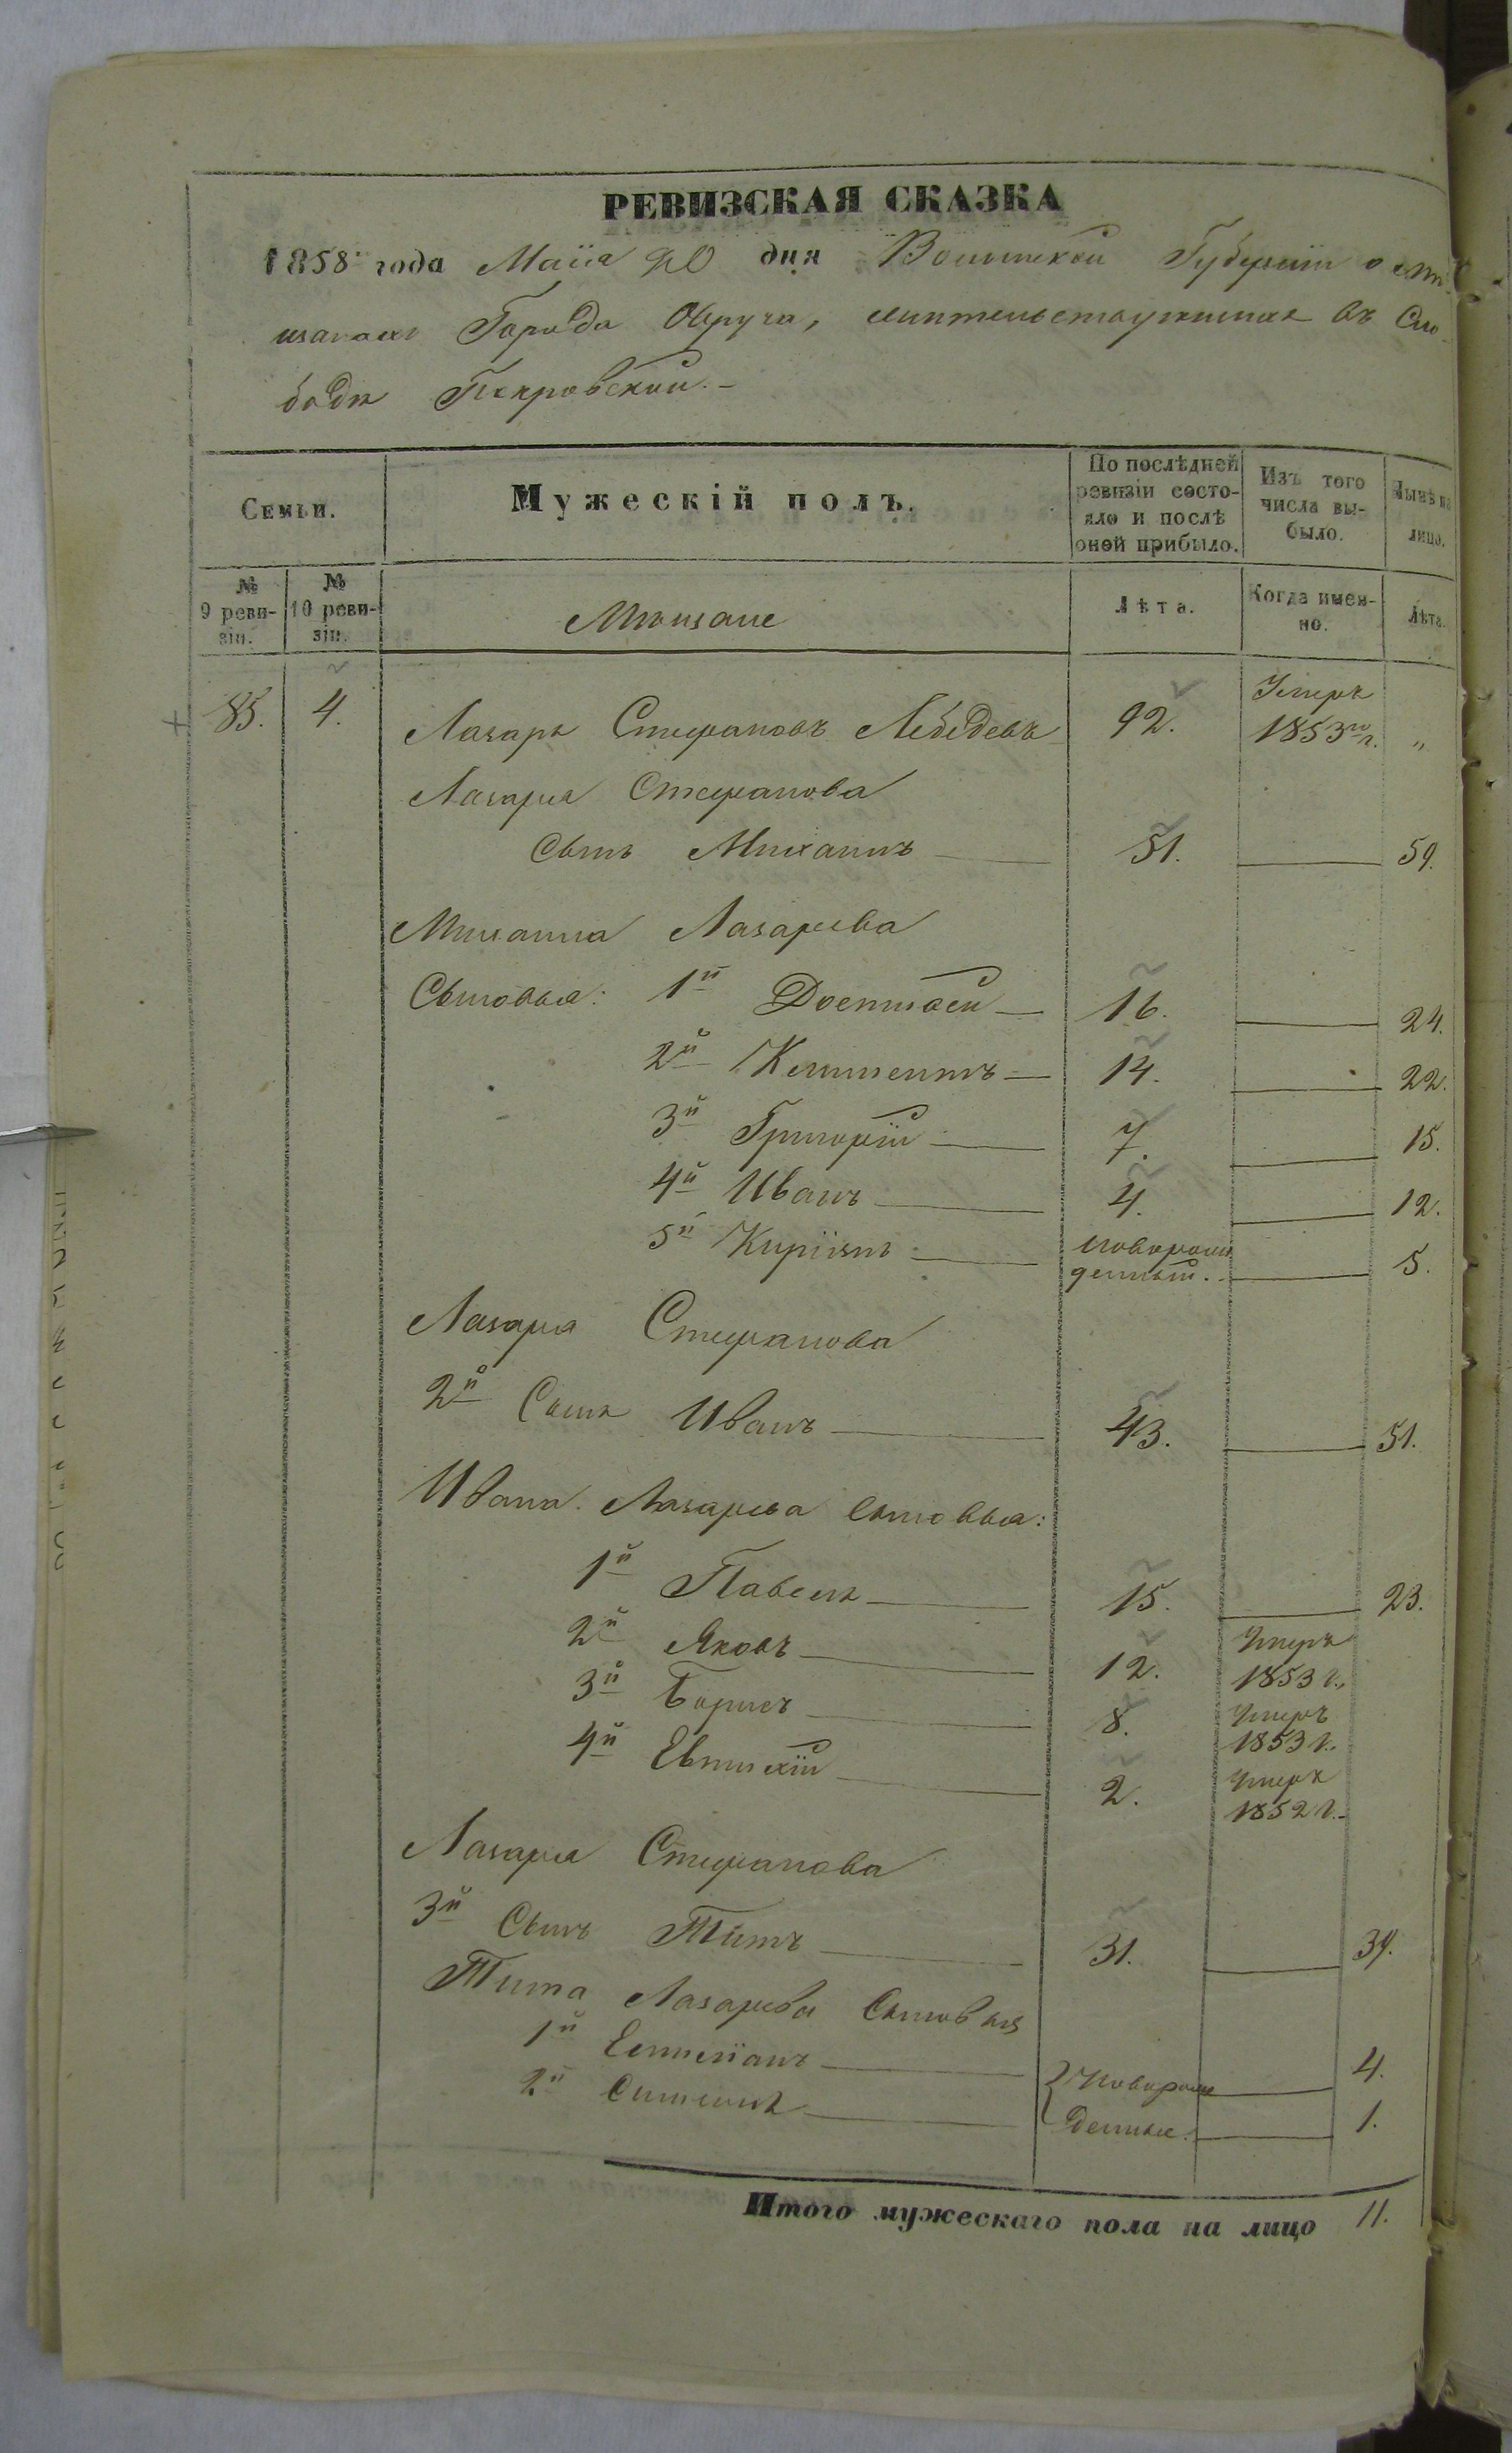 РЕВИЗСКАЯ СКАЗКА
1858 года Маія 20 дня Волынской Губерніи о мѣ-
щанахъ Города Овруча, жительствующихъ въ Сло-
бодѣ Покровской.-
Семьи.
Мужескій полъ.
По послѣдней ревизіи состо-
яло и послѣ
оной прибыло.
Изъ того
числа вы-
было.
Нынѣ на
лицо.
№
9 реви-
зіи.
№
10 реви-
зіи.
Мѣщане
Лѣта.
Когда имен-
но.
Лѣта.
85. 4. Лазарь Стефановъ Лебедевъ 92. Умеръ 1853го г. "
Лазаря Стефанова
Сынъ Михаилъ 51. 59.
Михаила Лазарева
Сыновья: 1й 16. 24.
2й Климентъ 14. 22.
3й Григорій 7. 15.
4й Иванъ 4. 12.
5й новорож-
денный. 5.
Лазаря Стефанова
2й Сынъ Иванъ 43. 51.
Ивана Лазарева сыновья:
1й Павелъ 15. 23.
2й Яковъ 12. Умеръ 1853 г.
3й Борисъ 8. Умеръ 1853 г.
4й Евтихій 2. Умеръ 1852 г.
Лазаря Стефанова
3й Сынъ Титъ 31. 39.
Тита Лазарева Сыновья
1й Емиліанъ 4.
2й Симеонъ 1.
новорож-
денные.
Итого мужескаго пола на лицо 11.